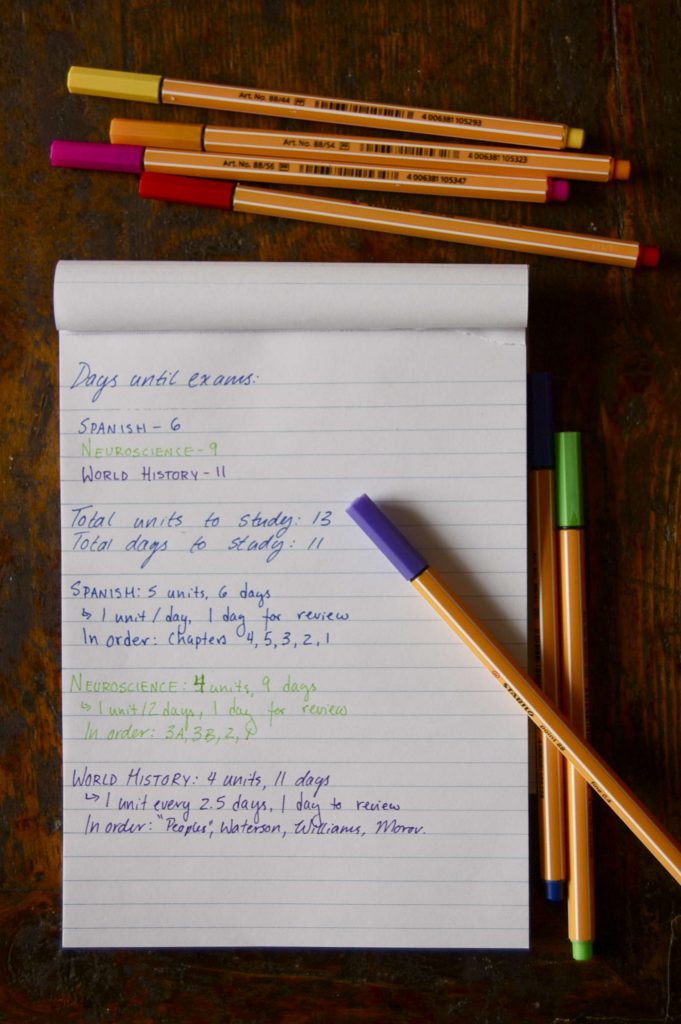 Art. No. 88/44 4 006381 105293
Art. No. 88/54 4 006381 105323
Art. No. 88/56 4 006381 105347
Days until exams:
SPANISH - 6
NEUROSCIENCE - 9
WORLD HISTORY - 11
Total units to study: 13
Total days to study: 11
SPANISH: 5 units, 6 days
↳ 1 unit/day, 1 day for review
In order: Chapters 4, 5, 3, 2, 1
NEUROSCIENCE: 4 units, 9 days
↳ 1 unit/2 days, 1 day for review
In order: 3A, 3B, 2, 1
WORLD HISTORY: 4 units, 11 days
↳ 1 unit every 2.5 days, 1 day to review
In order: "Peoples", Waterson, Williams, Morov.
STABILO point 88 fine 0.4